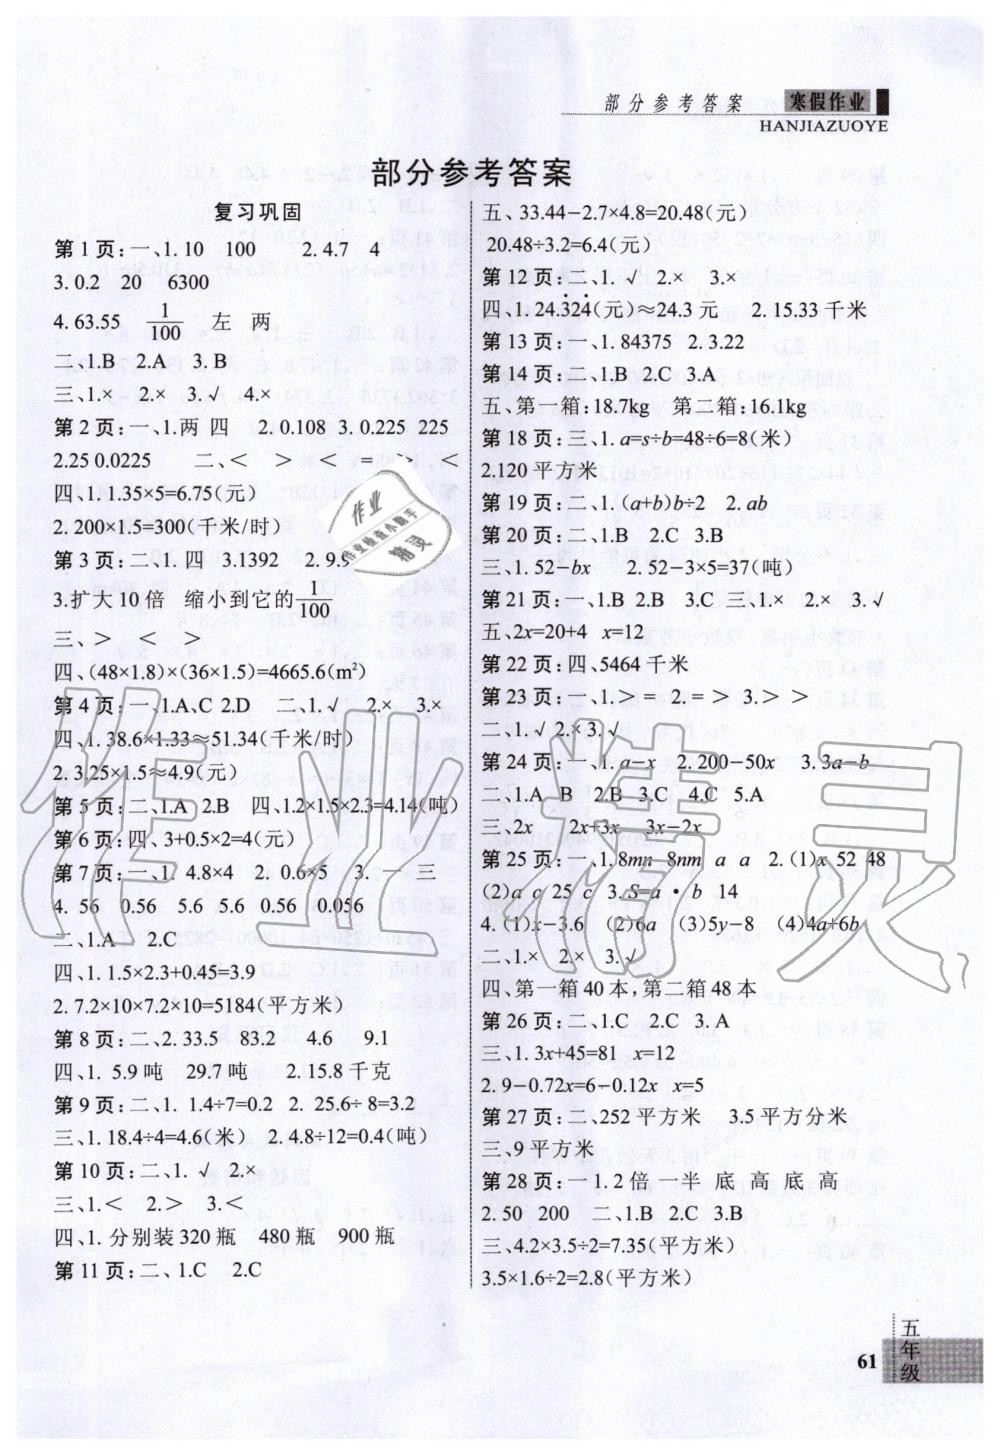 部分参考答案 寒假作业
HANJIAZUOYE
部分参考答案
复习巩固
第1页:一、1.10 100 2.4.7 4
3.0.2 20 6300
4.63.55 1/100 左 两
二、1.B 2.A 3.B
三、1.× 2.× 3.√ 4.×
第2页:一、1.两 四 2.0.108 3.0.225 225
2.25 0.0225 二、< > < = < <
四、1.1.35×5=6.75(元)
2.200×1.5=300(千米/时)
第3页:二、1.四 3.1392 2.9.9
3.扩大10倍 缩小到它的1/100
三、> < >
四、(48×1.8)×(36×1.5)=4665.6(m²)
第4页:一、1.A、C 2.D 二、1.√ 2.× 3.×
四、1.38.6×1.33≈51.34(千米/时)
2.3.25×1.5≈4.9(元)
第5页:二、1.A 2.B 四、1.2×1.5×2.3=4.14(吨)
第6页:四、3+0.5×2=4(元)
第7页:一、1. 4.8×4 2. 0.6×5 3. 一 三
4. 56 0.56 5.6 5.6 0.56 0.056
二、1.A 2.C
四、1.1.5×2.3+0.45=3.9
2.7.2×10×7.2×10=5184(平方米)
第8页:二、2.33.5 83.2 4.6 9.1
四、1. 5.9吨 29.7吨 2.15.8千克
第9页:二、1. 1.4÷7=0.2 2. 25.6÷8=3.2
三、1.18.4÷4=4.6(米) 2.4.8÷12=0.4(吨)
第10页:二、1. √ 2.×
三、1.< 2.> 3.<
四、1.分别装320瓶 480瓶 900瓶
第11页:二、1.C 2.C
五、33.44-2.7×4.8=20.48(元)
20.48÷3.2=6.4(元)
第12页:二、1.√ 2.× 3.×
四、1.24.3̇24̇(元)≈24.3元 2.15.33千米
第13页:一、1.84375 2.3.22
第14页:二、1.B 2.C 3.A
五、第一箱:18.7kg 第二箱:16.1kg
第18页:三、1.a=s÷b=48÷6=8(米)
2.120平方米
第19页:二、1.(a+b)b÷2 2.ab
第20页:二、1.B 2.C 3.B
三、1.52-bx 2.52-3×5=37(吨)
第21页:一、1.B 2.B 3.C 三、1.× 2.× 3.√
五、2x=20+4 x=12
第22页:四、5464千米
第23页:一、1.> = 2.= > 3.> >
二、1.√ 2.× 3.√
第24页:一、1.a-x 2.200-50x 3.3a-b
二、1.A B 2.B 3.C 4.C 5.A
三、2x 2x+3x 3x-2x
第25页:一、1.8mn 8nm a a 2.(1)x 52 48
(2)a c 25 c 3.S=a·b 14
4.(1)x-3.6 (2)6a (3)5y-8 (4)4a+6b
二、1.× 2.× 3.√
四、第一箱40本,第二箱48本
第26页:二、1.C 2.C 3.A
三、1.3x+45=81 x=12
2.9-0.72x=6-0.12x x=5
第27页:二、252平方米 3.5平方分米
三、9平方米
第28页:一 1.2倍 一半 底 高 底 高
2.50 200 二、1.B 2.C 3.B
三、4.2×3.5÷2=7.35(平方米)
3.5×1.6÷2=2.8(平方米)
五年级
61
作业精灵